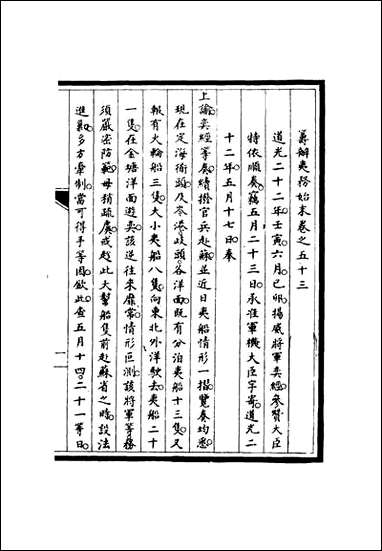 籌辦夷務始末卷之五十三
道光二十二年壬寅六月己卯揚威將軍奕經參贊大臣
特依順奏竊五月二十三日承准軍機大臣字寄道光二
十二年五月十七日奉
上諭奕經等奏續撥官兵赴蘇並近日夷船情形一摺覽奏均悉
現在定海衜頭及岑港岐頭各洋面既有分泊夷船十三隻又
報有火輪船三隻大小夷船八隻向東北外洋駛去夷船二十
一隻在金塘洋面遊奕該逆往來靡常情形叵測該將軍等務
須嚴密防範毋稍疏虞或趁此大幫船隻前赴蘇省之時設法
進剿多方牽制當可得手等因欽此查五月十四二十一等日
一